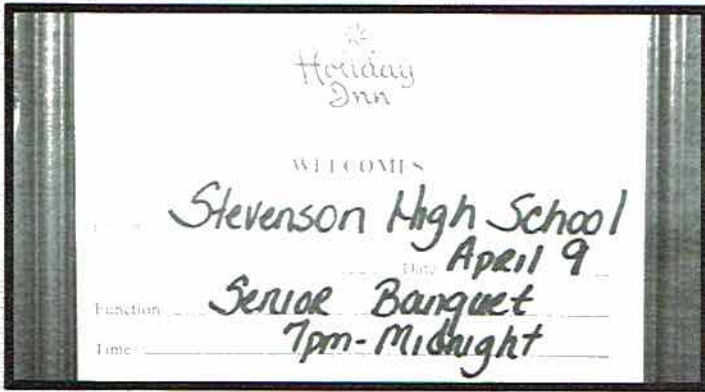 Holiday
Inn
WELCOMES
Stevenson High School
Date April 9
Function Senior Banquet
Time 7pm-Midnight